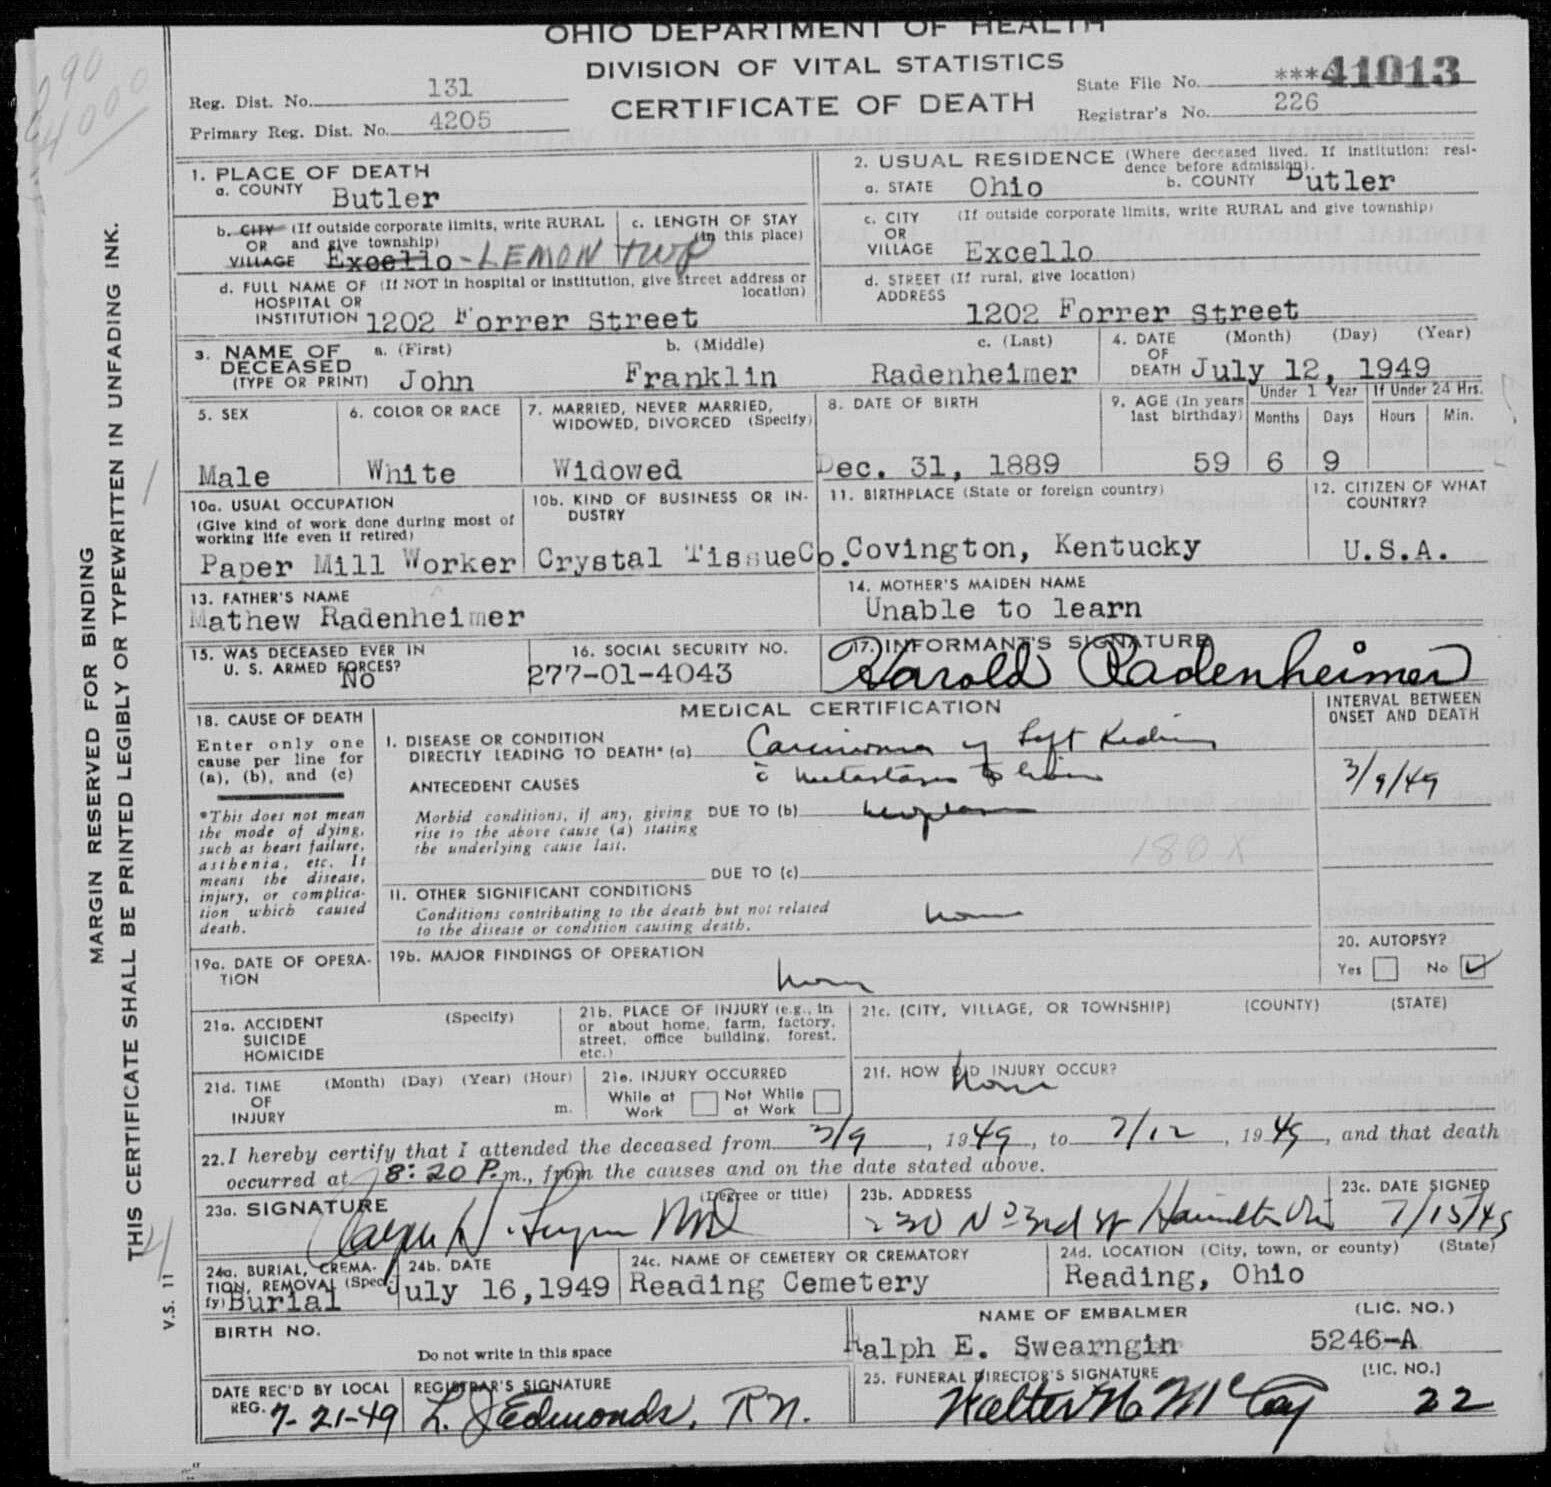 OHIO DEPARTMENT OF HEALTH
DIVISION OF VITAL STATISTICS
CERTIFICATE OF DEATH
Reg. Dist. No. 131
Primary Reg. Dist. No. 4205
State File No. ***41013
Registrar's No. 226
MARGIN RESERVED FOR BINDING
THIS CERTIFICATE SHALL BE PRINTED LEGIBLY OR TYPEWRITTEN IN UNFADING INK.
V.S. 11
1. PLACE OF DEATH
a. COUNTY Butler
b. CITY (If outside corporate limits, write RURAL
OR and give township)
VILLAGE Excello - LEMON twp
c. LENGTH OF STAY
(in this place)
d. FULL NAME OF (If NOT in hospital or institution, give street address or
HOSPITAL OR location)
INSTITUTION 1202 Forrer Street
2. USUAL RESIDENCE (Where deceased lived. If institution: resi-
dence before admission).
a. STATE Ohio b. COUNTY Butler
c. CITY (If outside corporate limits, write RURAL and give township)
OR
VILLAGE Excello
d. STREET (If rural, give location)
ADDRESS
1202 Forrer Street
3. NAME OF DECEASED (TYPE OR PRINT)
a. (First) b. (Middle) c. (Last)
John Franklin Radenheimer
4. DATE OF DEATH (Month) (Day) (Year)
July 12, 1949
5. SEX
Male
6. COLOR OR RACE
White
7. MARRIED, NEVER MARRIED,
WIDOWED, DIVORCED (Specify)
Widowed
8. DATE OF BIRTH
Dec. 31, 1889
9. AGE (In years
last birthday)
59
Under 1 Year
Months Days
6 9
If Under 24 Hrs.
Hours Min.
10a. USUAL OCCUPATION
(Give kind of work done during most of
working life even if retired)
Paper Mill Worker
10b. KIND OF BUSINESS OR IN-
DUSTRY
Crystal TissueCo.
11. BIRTHPLACE (State or foreign country)
Covington, Kentucky
12. CITIZEN OF WHAT
COUNTRY?
U.S.A.
13. FATHER'S NAME
Mathew Radenheimer
14. MOTHER'S MAIDEN NAME
Unable to learn
15. WAS DECEASED EVER IN
U. S. ARMED FORCES?
No
16. SOCIAL SECURITY NO.
277-01-4043
17. INFORMANT'S SIGNATURE
Harold Radenheimer
18. CAUSE OF DEATH
Enter only one
cause per line for
(a), (b), and (c)
*This does not mean
the mode of dying,
such as heart failure,
asthenia, etc. It
means the disease,
injury, or complica-
tion which caused
death.
MEDICAL CERTIFICATION
INTERVAL BETWEEN
ONSET AND DEATH
I. DISEASE OR CONDITION
DIRECTLY LEADING TO DEATH* (a) Carcinoma of Left Kidney
c̄ metastases to liver
3/9/49
ANTECEDENT CAUSES
Morbid conditions, if any, giving
rise to the above cause (a) stating
the underlying cause last.
DUE TO (b) neoplasm
180 X
DUE TO (c)
II. OTHER SIGNIFICANT CONDITIONS
Conditions contributing to the death but not related
to the disease or condition causing death.
none
19a. DATE OF OPERA-
TION
19b. MAJOR FINDINGS OF OPERATION
none
20. AUTOPSY?
Yes No ✓
21a. ACCIDENT (Specify)
SUICIDE
HOMICIDE
21b. PLACE OF INJURY (e.g., in
or about home, farm, factory,
street, office building, forest,
etc.)
21c. (CITY, VILLAGE, OR TOWNSHIP) (COUNTY) (STATE)
21d. TIME (Month) (Day) (Year) (Hour)
OF
INJURY m.
21e. INJURY OCCURRED
While at Work Not While at Work
21f. HOW DID INJURY OCCUR?
none
22. I hereby certify that I attended the deceased from 3/9, 1949, to 7/12, 1949, and that death
occurred at 8:20 P.m., from the causes and on the date stated above.
23a. SIGNATURE (Degree or title)
MD
23b. ADDRESS
230 No 3rd St Hamilton Ohio
23c. DATE SIGNED
7/15/49
24a. BURIAL, CREMA-
TION, REMOVAL (Speci-
fy) Burial
24b. DATE
July 16,1949
24c. NAME OF CEMETERY OR CREMATORY
Reading Cemetery
24d. LOCATION (City, town, or county) (State)
Reading, Ohio
BIRTH NO.
Do not write in this space
NAME OF EMBALMER (LIC. NO.)
Ralph E. Swearngin 5246-A
DATE REC'D BY LOCAL
REG. 7-21-49
REGISTRAR'S SIGNATURE
L. J Edmonds, R.N.
25. FUNERAL DIRECTOR'S SIGNATURE (LIC. NO.)
Walter H McCoy 22